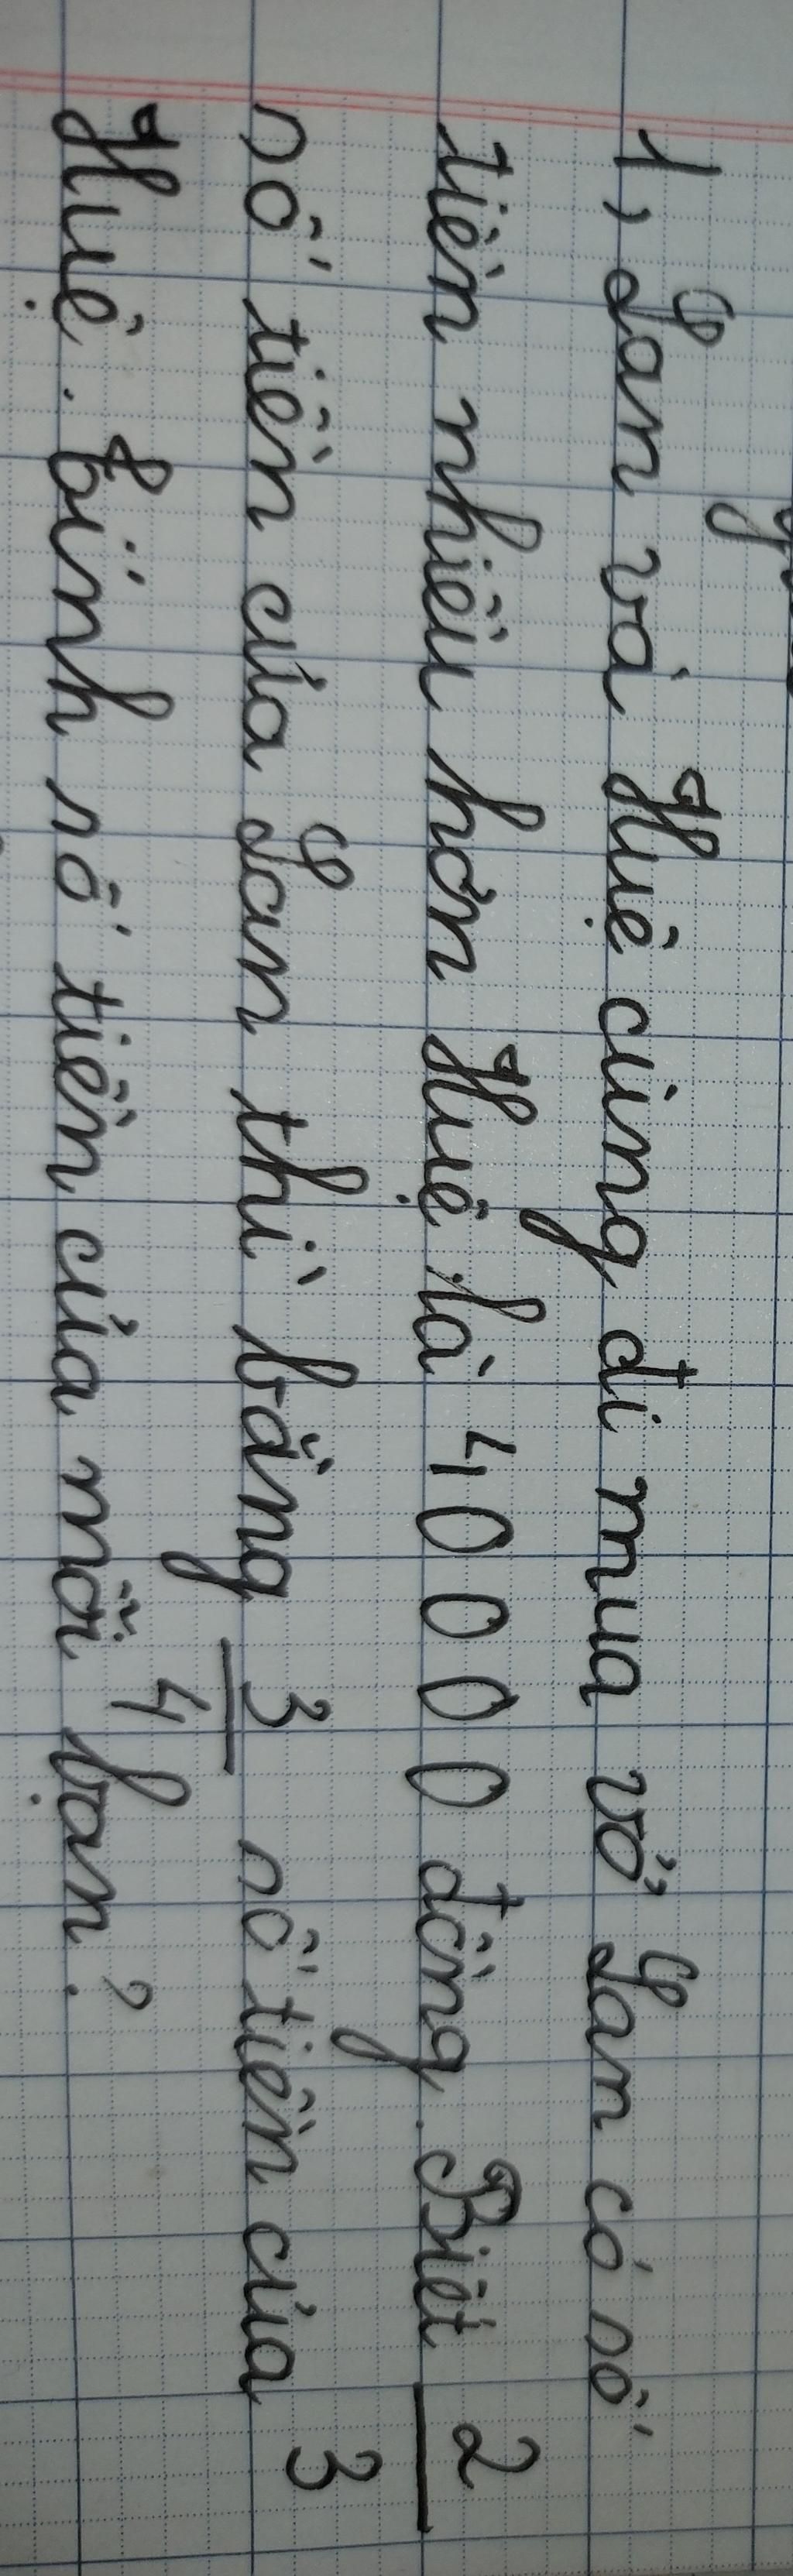 1, Lan và Huệ cùng đi mua vở, Lan có số
tiền nhiều hơn Huệ là 4000 đồng. Biết 2/3
số tiền của Lan thì bằng 3/4 số tiền của
Huệ. Tính số tiền của mỗi bạn?